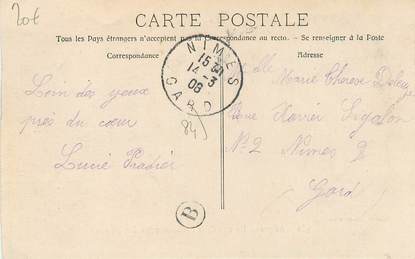 20€
CARTE POSTALE
Tous les Pays étrangers n'acceptent pas la Correspondance au recto. – Se renseigner à la Poste
Correspondance
Adresse
NIMES
15
14 - 3
08
GARD
84
Loin des yeux
près du cœur
Marie Therese
Rue Xavier Sigalon
N° 2 Nimes
(Gard)
B